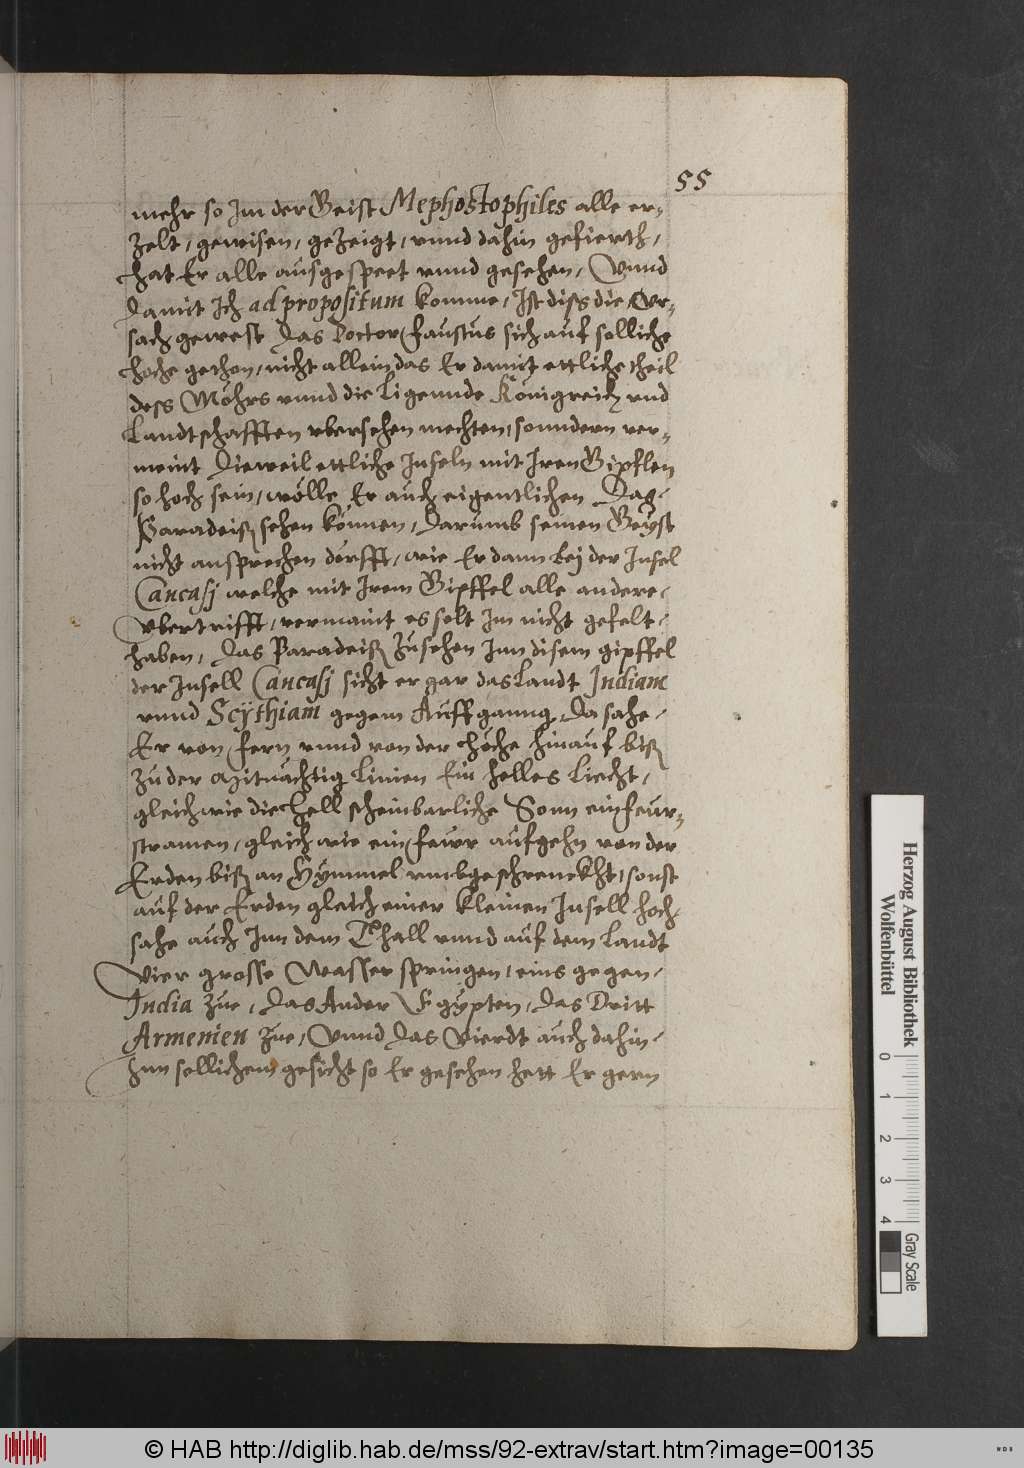 55
mehr so Im der Geist Mephostophiles alle er-
zelt, gewisen, gezeigt, vnnd dahin gefierth,
hat Er alle ausgespeet vnnd gesehen, Vnnd
damit Ich ad propositum komme, Ist diss die Vr-
sach gewest das Doctor Faustus sich auf solliche
hoche gethon, nicht allein das Er damit ettliche theil
dess Möhrs vnnd die Ligennde Königreich vnd
Landtschafften vbersehen mechten, sonndern ver-
meint Dieweil ettliche Inseln mit Iren Gipflen
so hoch sein, wölle Er auch eigentlichen Das
Paradeiß sehen können, Darumb seinen Geyst
nicht ansprechen dörfft, wie Er dann bej der Insel
Caucasj welche mit Irem Gipffel alle andere
Vbertrifft, vermaint es solt Im nicht gefelt
haben, Das Paradeiß zusehen Inn disem gipffel
der Insell Caucasj sicht er gar das Landt Indiam
vnnd Scÿthiam gegem Auffganng, Da sahe
Er von Fern vnnd von der höche hinauf biß
zu der Mitnachtig Linien Ein helles Liecht,
gleich wie die hell scheinbarliche Sonn ein Feur-
stramen, gleich wie ein Fewr aufgehn von der
Erden biß an Hymmel vmbgeschrenckht, sonst
auf der Erden gleich einer kleinen Insell hoch
sahe auch Inn dem Thall vnnd auf dem Landt
Vier grosse Wasser springen, eins gegen
India zue, Das Ander Egypten, Das Dritt
Armenien zue, Vnnd Das Vierdt auch dahin
Inn sollichem gesicht so Er gesehen hett Er gern
Herzog August Bibliothek
Wolfenbüttel
0 1 2 3 4
Gray Scale
© HAB http://diglib.hab.de/mss/92-extrav/start.htm?image=00135